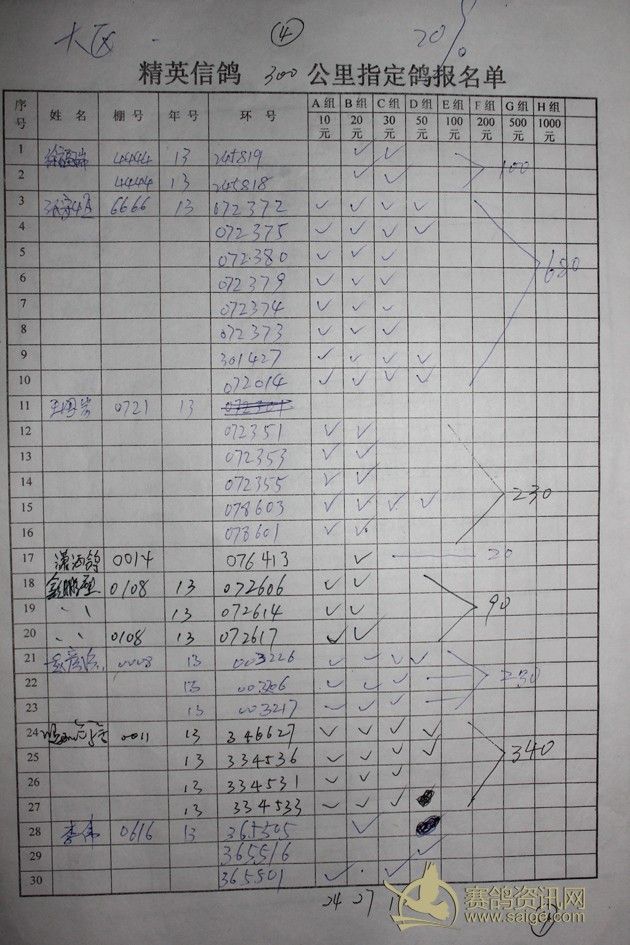 大区 ④ 20%
精英信鸽 300 公里指定鸽报名单
序号 姓名 棚号 年号 环号 A组10元 B组20元 C组30元 D组50元 E组100元 F组200元 G组500元 H组1000元
1 4444 13 245819 ✓ ✓
2 4444 13 245818 ✓ ✓ 100
3 6666 13 072372 ✓ ✓ ✓ ✓
4 072375 ✓ ✓ ✓ ✓
5 072380 ✓ ✓ ✓ 680
6 072379 ✓ ✓ ✓
7 072374 ✓ ✓ ✓
8 072373 ✓ ✓ ✓
9 301427 ✓ ✓ ✓ ✓
10 072014 ✓ ✓ ✓ ✓
11 0721 13
12 072351 ✓ ✓
13 072353 ✓ ✓
14 072355 ✓ ✓ 230
15 078603 ✓ ✓ ✓ ✓
16 078601 ✓ ✓
17 潇洒鸽 0014 076413 ✓ 20
18 0108 13 072606 ✓ ✓
19 〃 13 072614 ✓ ✓ 90
20 〃 0108 13 072617 ✓ ✓
21 0008 13 003226 ✓ ✓ ✓ ✓
22 13 003206 ✓ ✓ ✓ 230
23 13 003217 ✓ ✓ ✓
24 0011 13 346627 ✓ ✓ ✓ ✓
25 13 334536 ✓ ✓ ✓ ✓ 340
26 13 334531 ✓ ✓ ✓
27 13 334533 ✓ ✓ ✓
28 李伟 0616 13 365505 ✓
29 365516 ✓
30 365501 ✓ ✓
24 27
赛鸽资讯网
www.saige.com